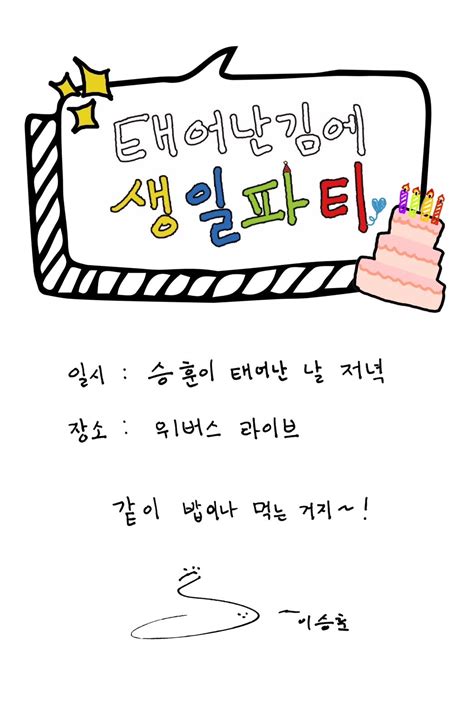 태어난김에
생일파티
일시 : 승훈이 태어난 날 저녁
장소 : 위버스 라이브
같이 밥이나 먹는 거지~!
-이승훈